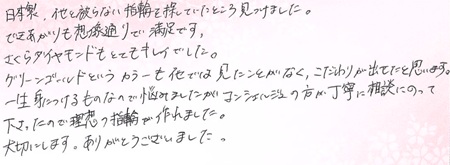 日本製、他と被らない指輪を探していたところ見つけました。
でき あがりも想像通りで満足です。
さくらダイヤモンドもとてもキレイでした。
グリーンゴールドというカラーも他では見たことがなく、こだわりが出てたと思います。
一生身につけるものなので悩みましたがコンシェルジュの方が丁寧に相談にのって
下さったので理想の指輪が作れました。
大切にします。ありがとうございました。